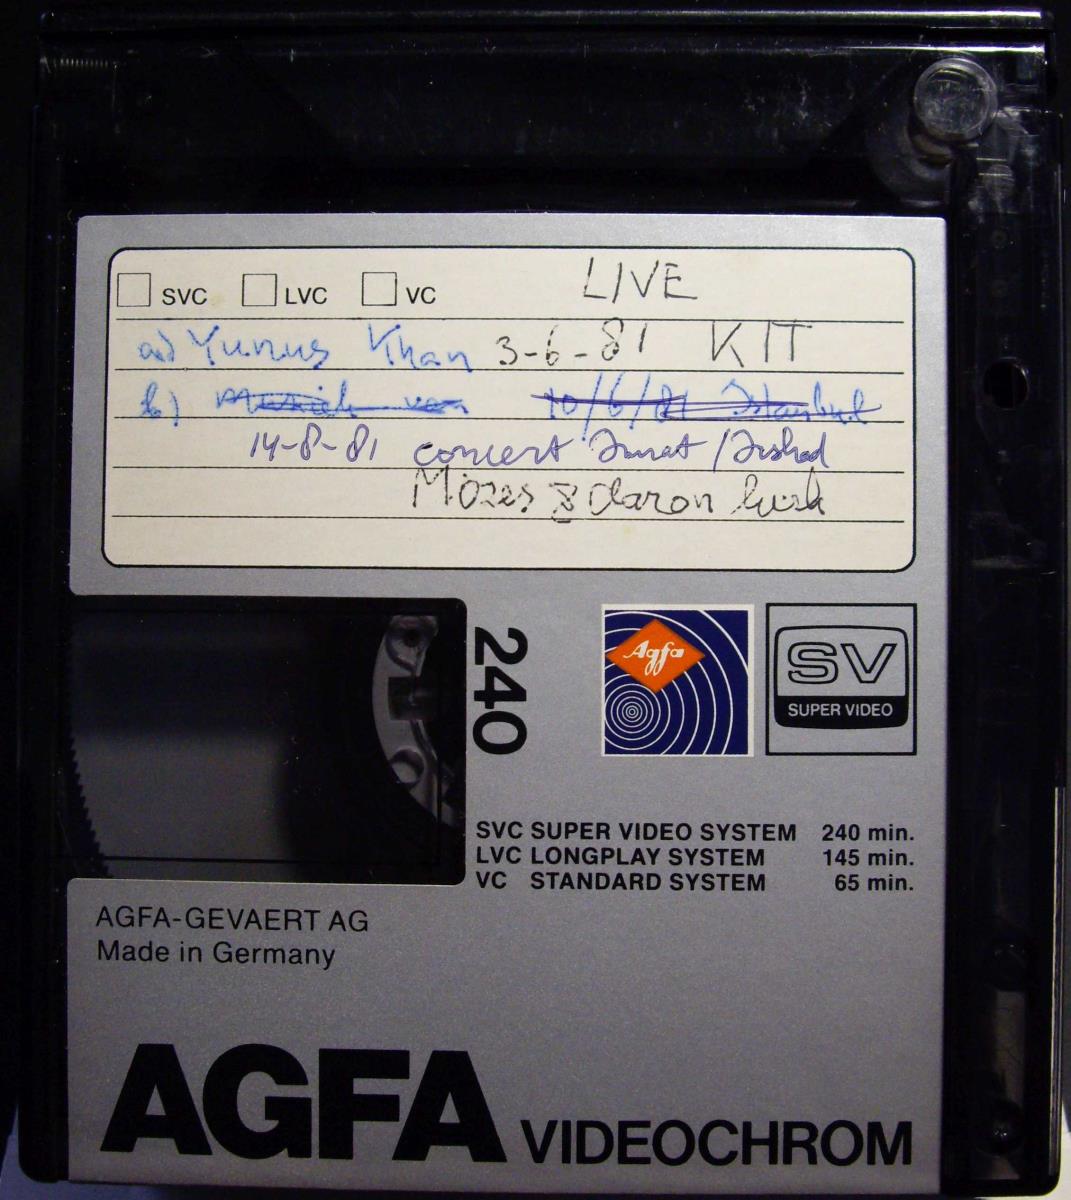 SVC LVC VC LIVE
a) Yunus Khan 3-6-81 KIT
b) van 10/6/81 Istanbul
14-8-81 concert /
Mozes & Aaron kerk
240
Agfa
SV
SUPER VIDEO
SVC SUPER VIDEO SYSTEM 240 min.
LVC LONGPLAY SYSTEM 145 min.
VC STANDARD SYSTEM 65 min.
AGFA-GEVAERT AG
Made in Germany
AGFA VIDEOCHROM